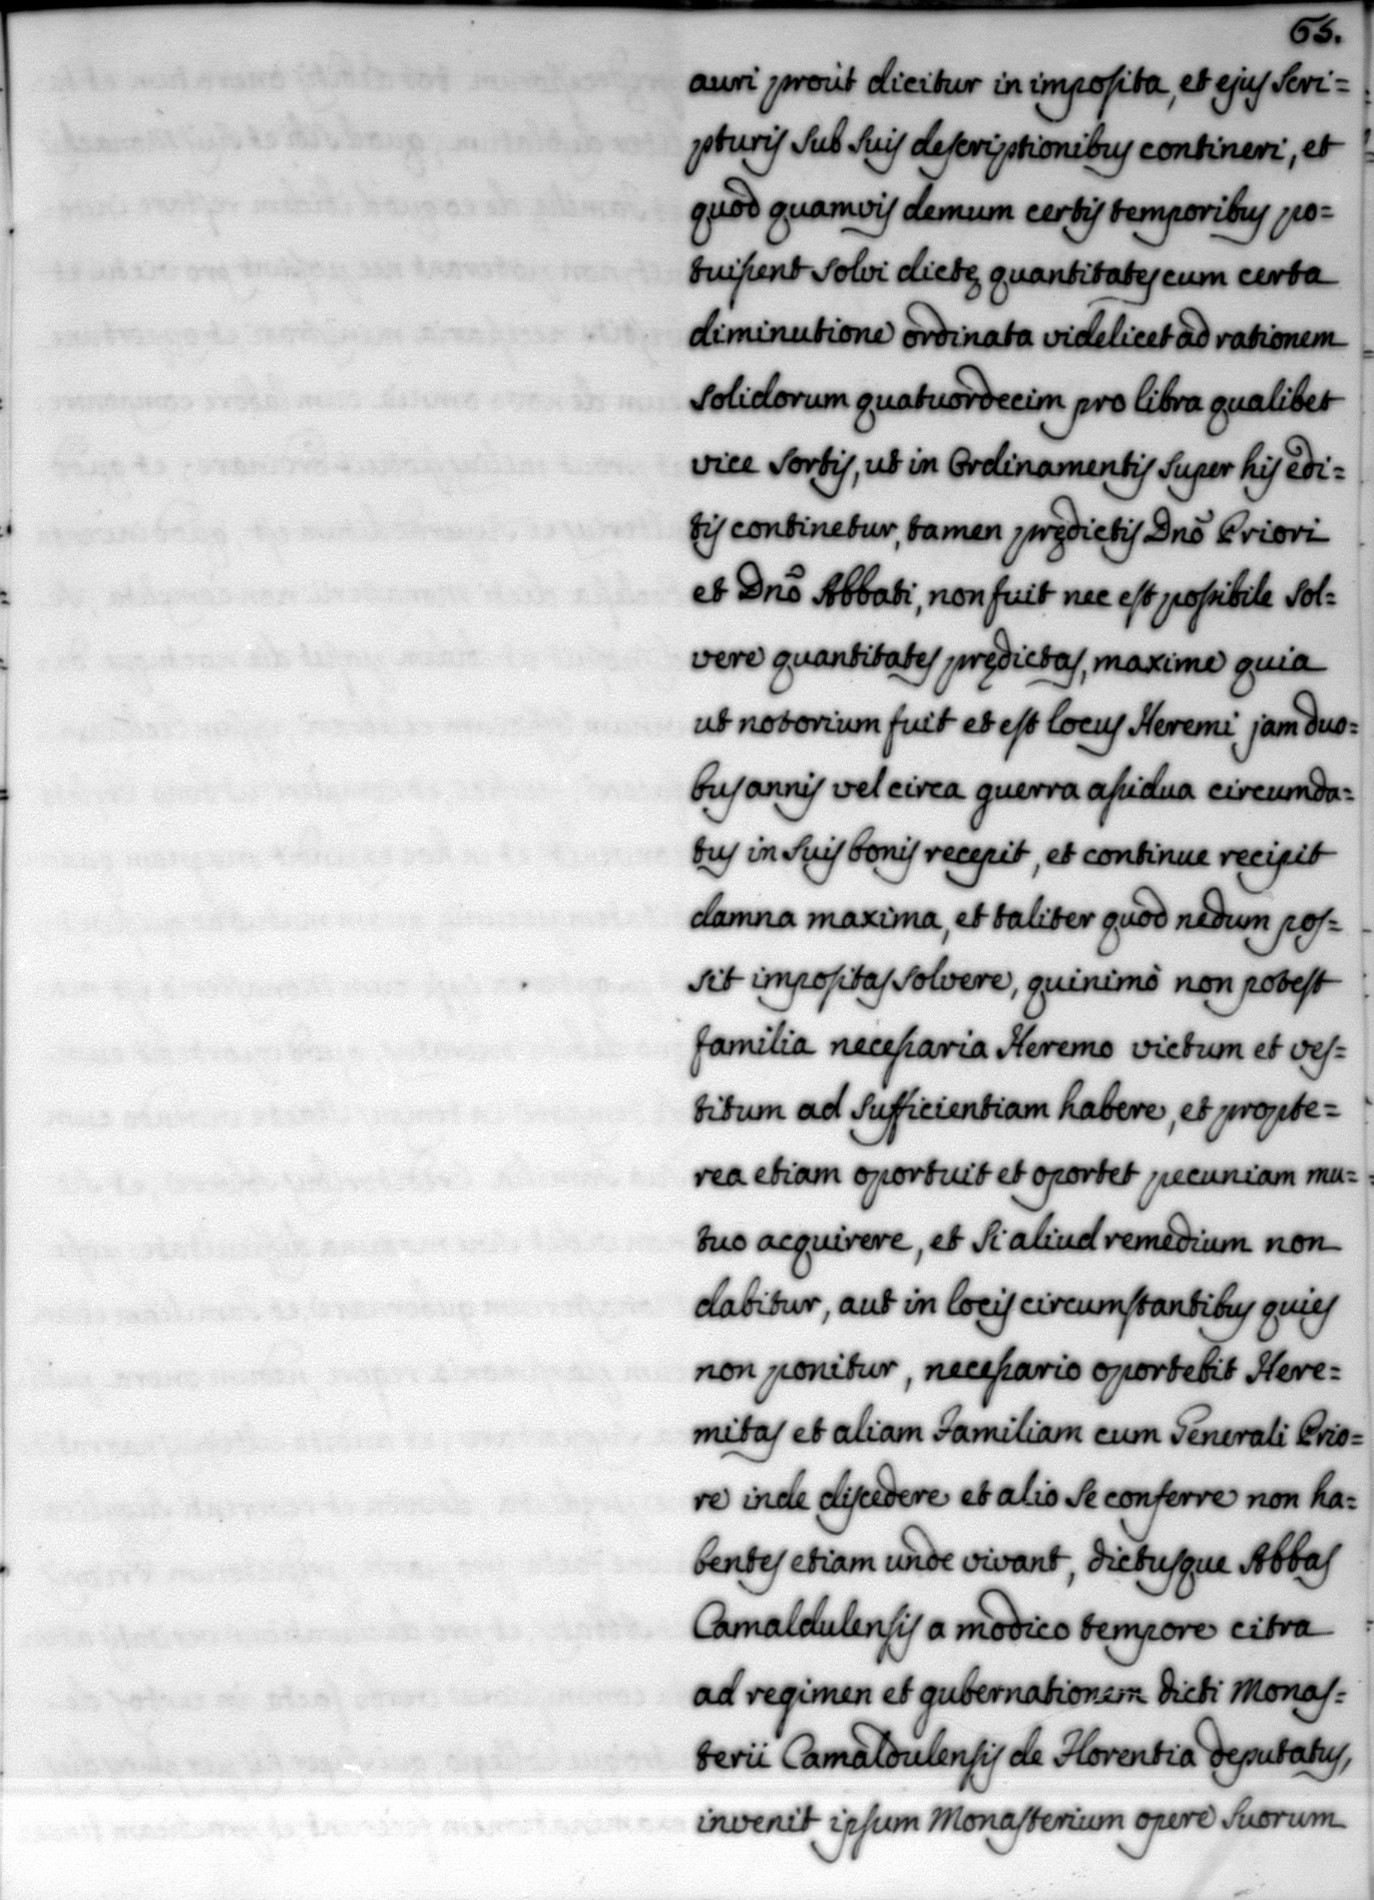 65.
auri proùt dicitur in imposita, et ejus scri=
pturis sub suis descriptionibus contineri, et
quòd quamvis demum certis temporibus po=
tuissent solvi dictę quantitates cum certa
diminutione ordinata videlicet ad rationem
solidorum quatuordecim pro libra qualibet
vice sortis, ut in Ordinamentis super his edi=
tis continetur, tamen prędictis Dnõ Priori
et Dnõ Abbati, non fuit nec est possibile sol=
vere quantitates prędictas, maxime quia
ut notorium fuit et est locus Heremi jam duo=
bus annis vel circa guerra assidua circumda=
tus in suis bonis recepit, et continue recipit
damna maxima, et taliter quòd nedum pos=
sit impositas solvere, quinimò non potest
familia necessaria Heremo victum et ves=
titum ad sufficientiam habere, et propte=
rea etiam oportuit et oportet pecuniam mu=
tuo acquirere, et si aliud remedium non
dabitur, aut in locis circumstantibus quies
non ponitur, necessario oportebit Here=
mitas et aliam Familiam cum Generali Prio=
re inde discedere et alio se conferre non ha=
bentes etiam unde vivant, dictusque Abbas
Camaldulensis a modico tempore citra
ad regimen et gubernationem dicti Monas=
terii Camaldulensis de Florentia deputatus,
invenit ipsum Monasterium opere suorum